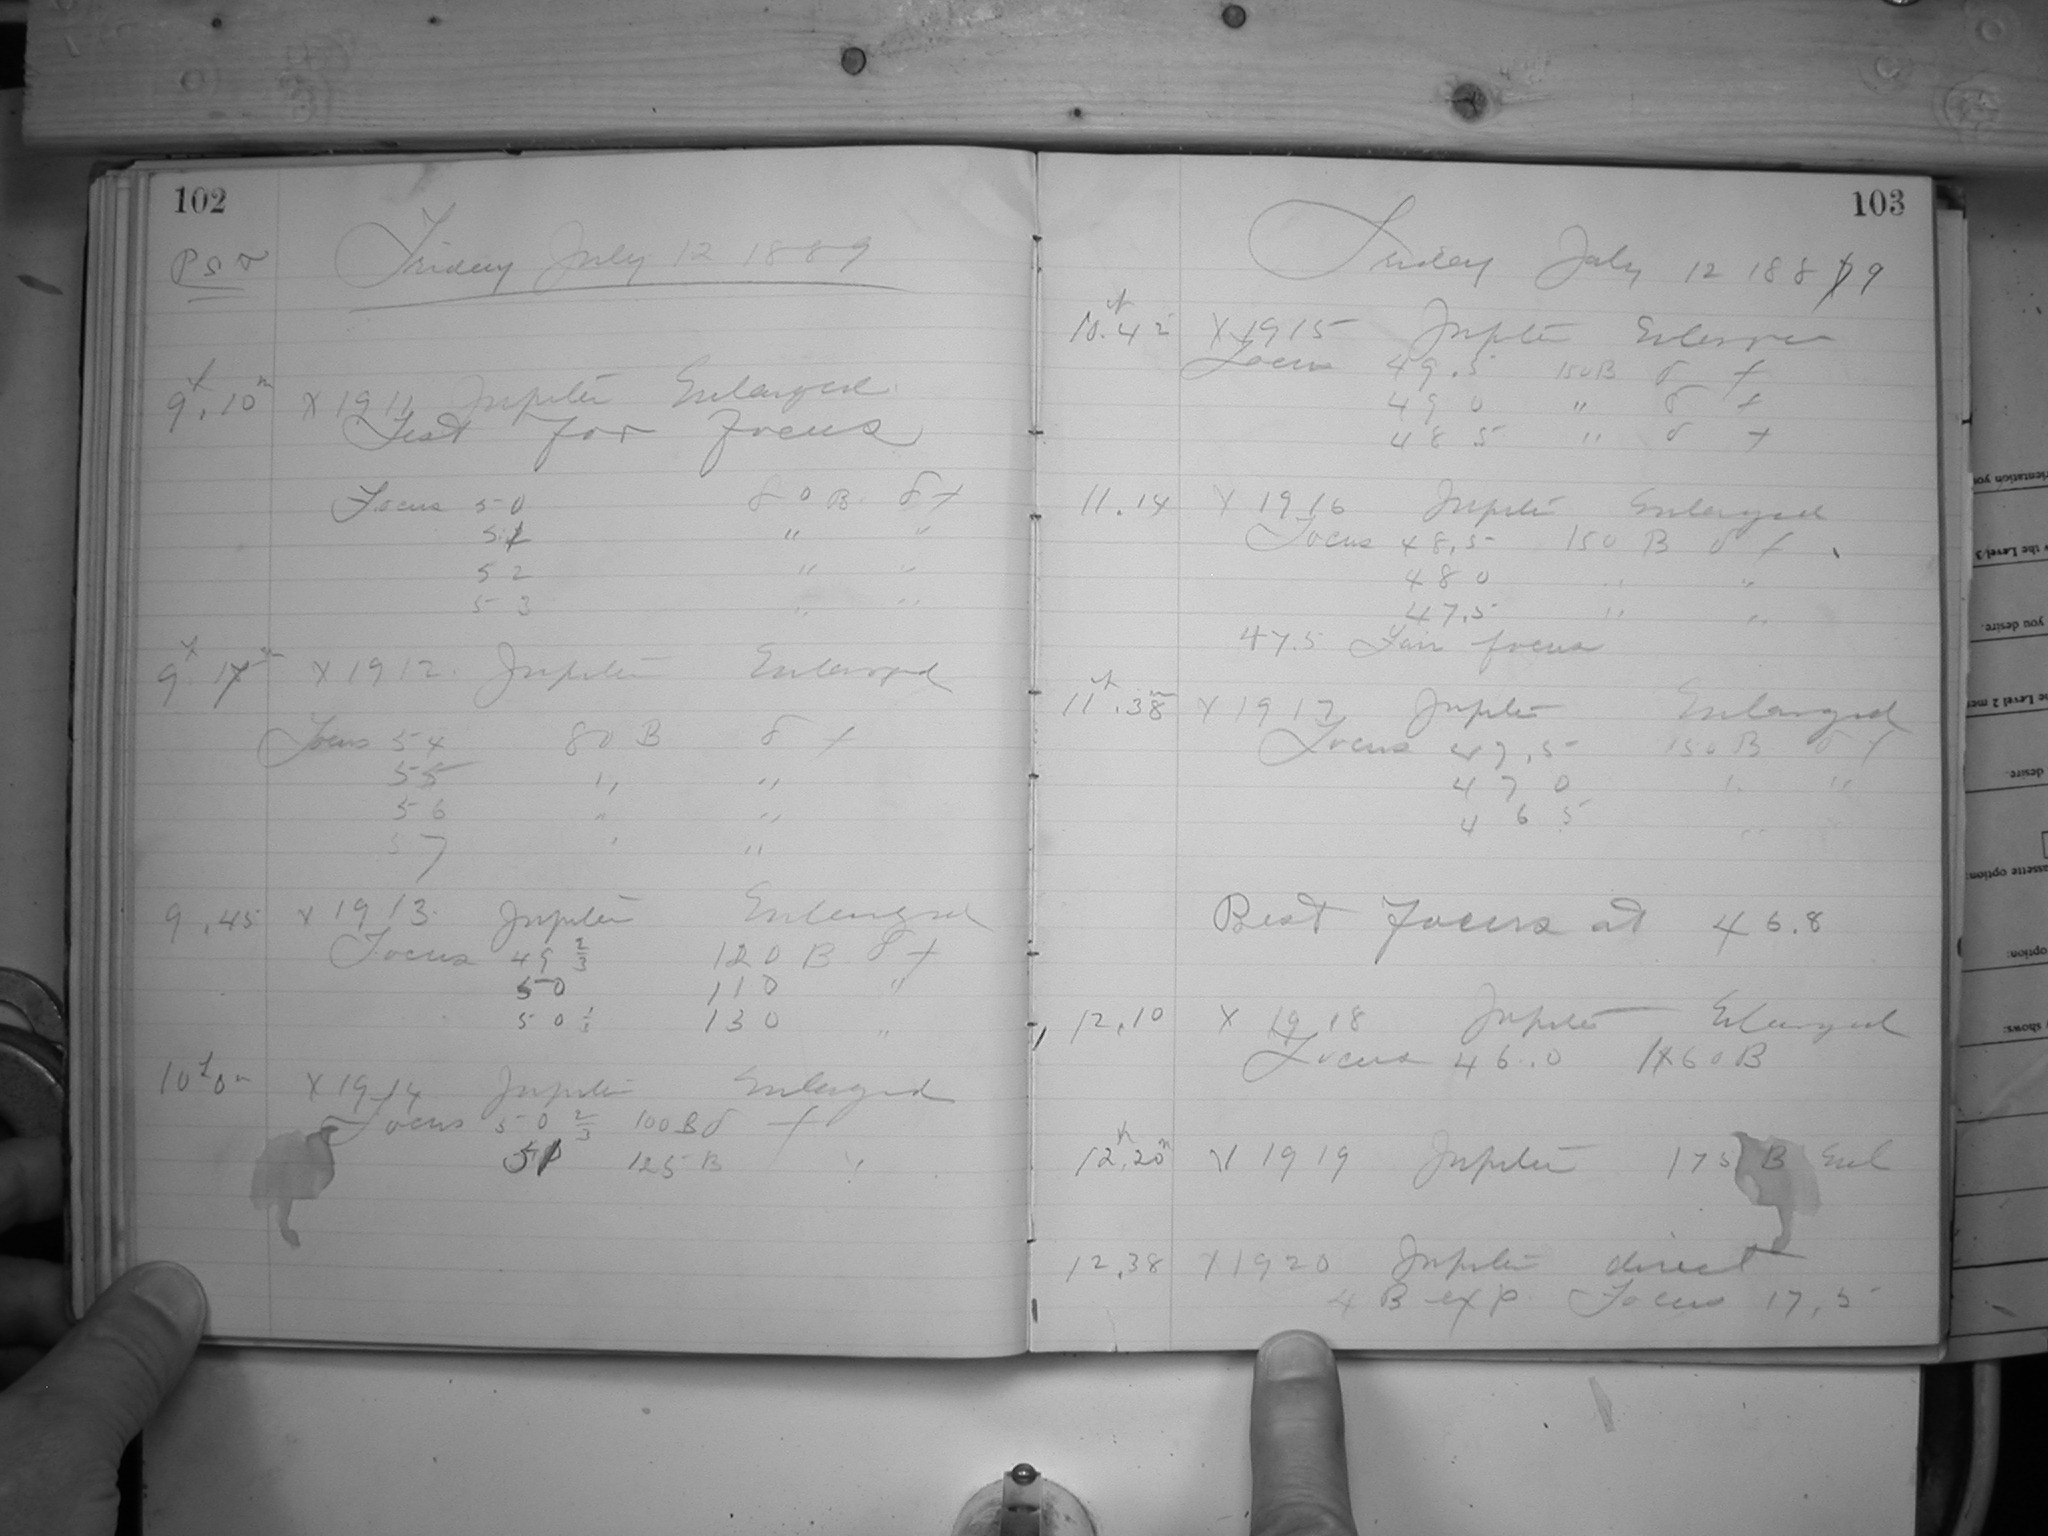 102
Friday July 12 1889
9h.10m X 1911 Jupiter Enlarged
Test for Focus
Focus 50 80 B. δ +
51 " "
52 " "
53 " "
X 1912. Jupiter Enlarged
Focus 54 80 B δ +
55 " "
56 " "
57 " "
9.45 X 1913. Jupiter Enlarged
Focus 49 2/3 120 B δ +
50 110 "
50 1/3 130 "
X 1914 Jupiter Enlarged
Focus 50 2/3 100 B δ +
51 125 B "
103
Friday July 12 1889
10h.42 X 1915 Jupiter Enlarged
Focus 49.5 150 B δ +
49 0 " δ +
48 5 " δ +
11.14 X 1916 Jupiter Enlarged
Focus 48.5 150 B δ +
48 0 " "
47.5 " "
47.5 Fair focus
11h.38m X 1917 Jupiter Enlarged
Focus 47.5 150 B δ +
47 0 " "
46 5 " "
Best Focus at 46.8
12.10 X 1918 Jupiter Enlarged
Focus 46.0 160 B
12h.20m X 1919 Jupiter 175 B Enl
12.38 X 1920 Jupiter direct
4 B exp. Focus 17.5
you desire.
desire.
option:
shows: